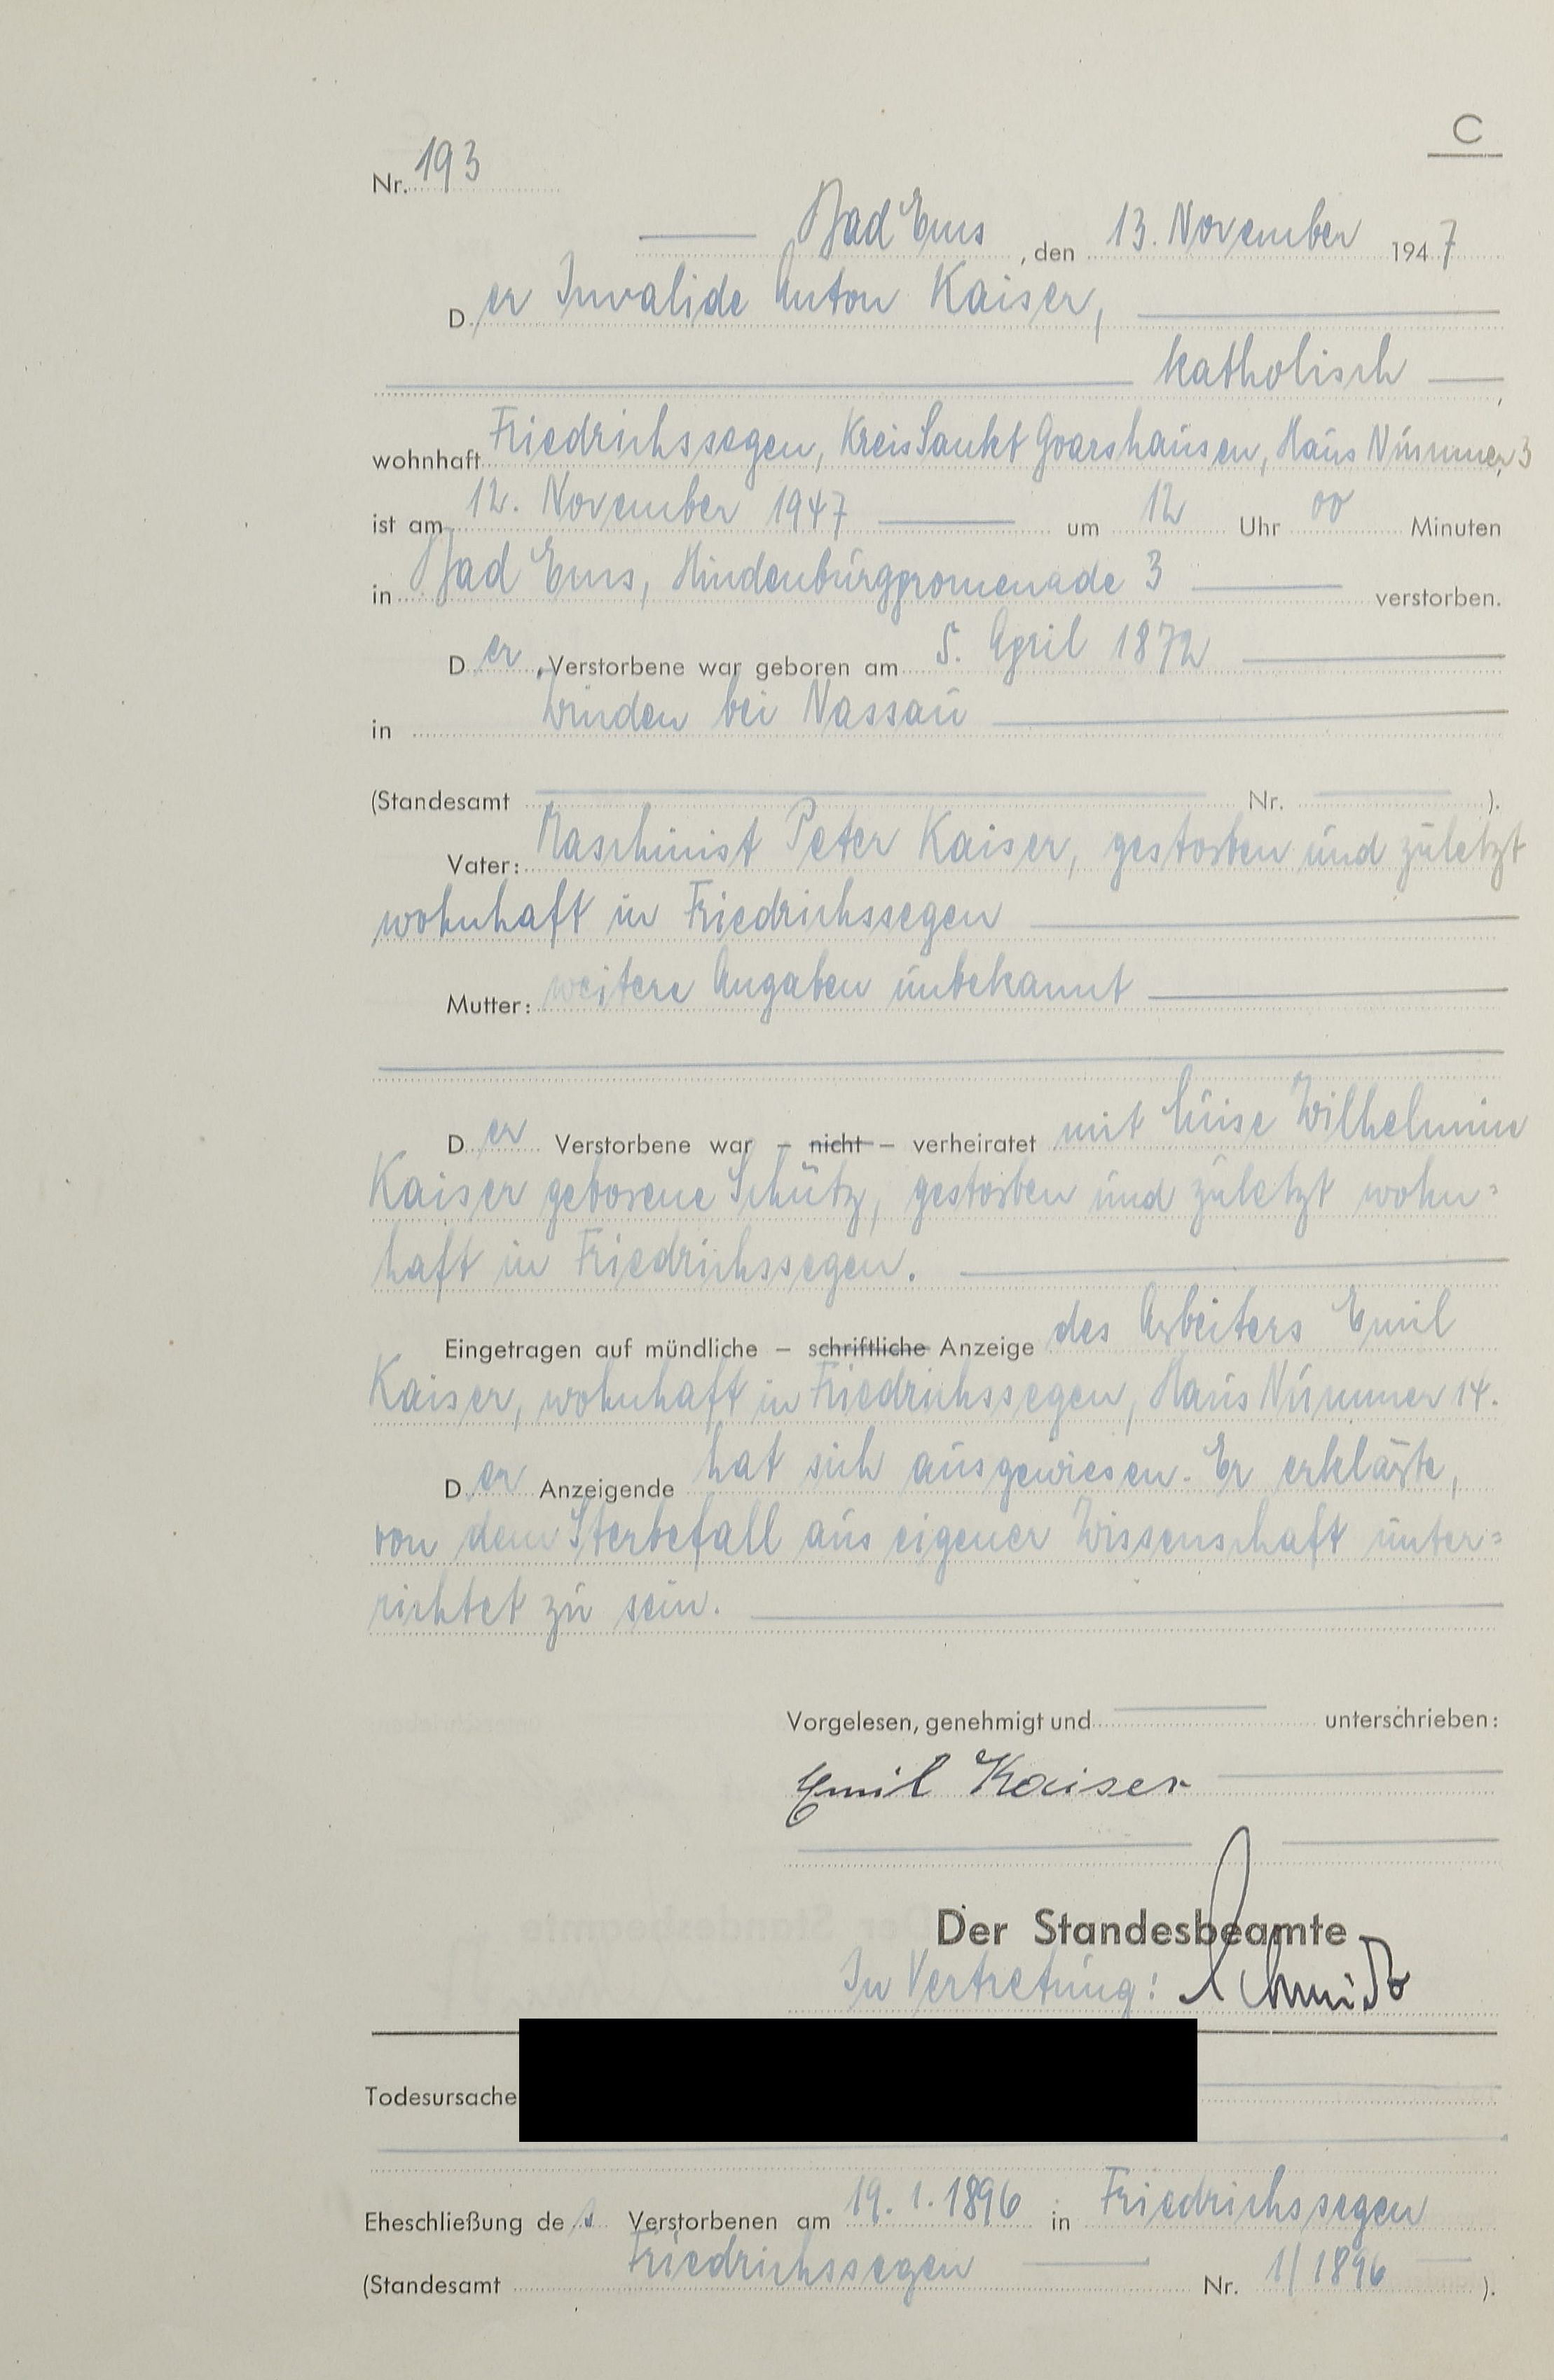 C
Nr. 193
Bad Ems, den 13. November 1947
Der Invalide Anton Kaiser,
katholisch,
wohnhaft Friedrichssegen, Kreis Sankt Goarshausen, Haus Nummer 3
ist am 12. November 1947 um 12 Uhr 00 Minuten
in Bad Ems, Hindenburgpromenade 3 verstorben.
Der Verstorbene war geboren am 5. April 1872
in Winden bei Nassau
(Standesamt Nr. ).
Vater: Maschinist Peter Kaiser, gestorben und zuletzt
wohnhaft in Friedrichssegen
Mutter: weitere Angaben unbekannt
Der Verstorbene war – nicht – verheiratet mit Luise Wilhelmine
Kaiser geborene Schütz, gestorben und zuletzt wohn=
haft in Friedrichssegen.
Eingetragen auf mündliche – schriftliche Anzeige des Arbeiters Emil
Kaiser, wohnhaft in Friedrichssegen, Haus Nummer 14.
Der Anzeigende hat sich ausgewiesen. Er erklärte,
von dem Sterbefall aus eigener Wissenschaft unter=
richtet zu sein.
Vorgelesen, genehmigt und unterschrieben:
Emil Kaiser
Der Standesbeamte
In Vertretung: Schmidt
Todesursache
Eheschließung des Verstorbenen am 19. 1. 1896 in Friedrichssegen
(Standesamt Friedrichssegen Nr. 1/1896 ).